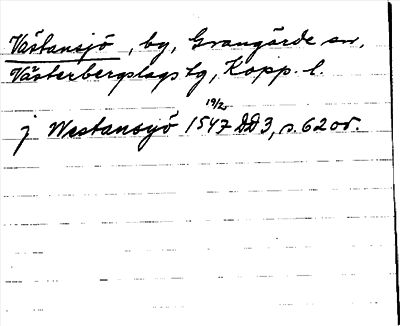 Västansjö, by, Grangärde sn,
Västerbergslags tg, Kopp. l.
19/2
j Westansyö 1547 DD3, s. 62 od.